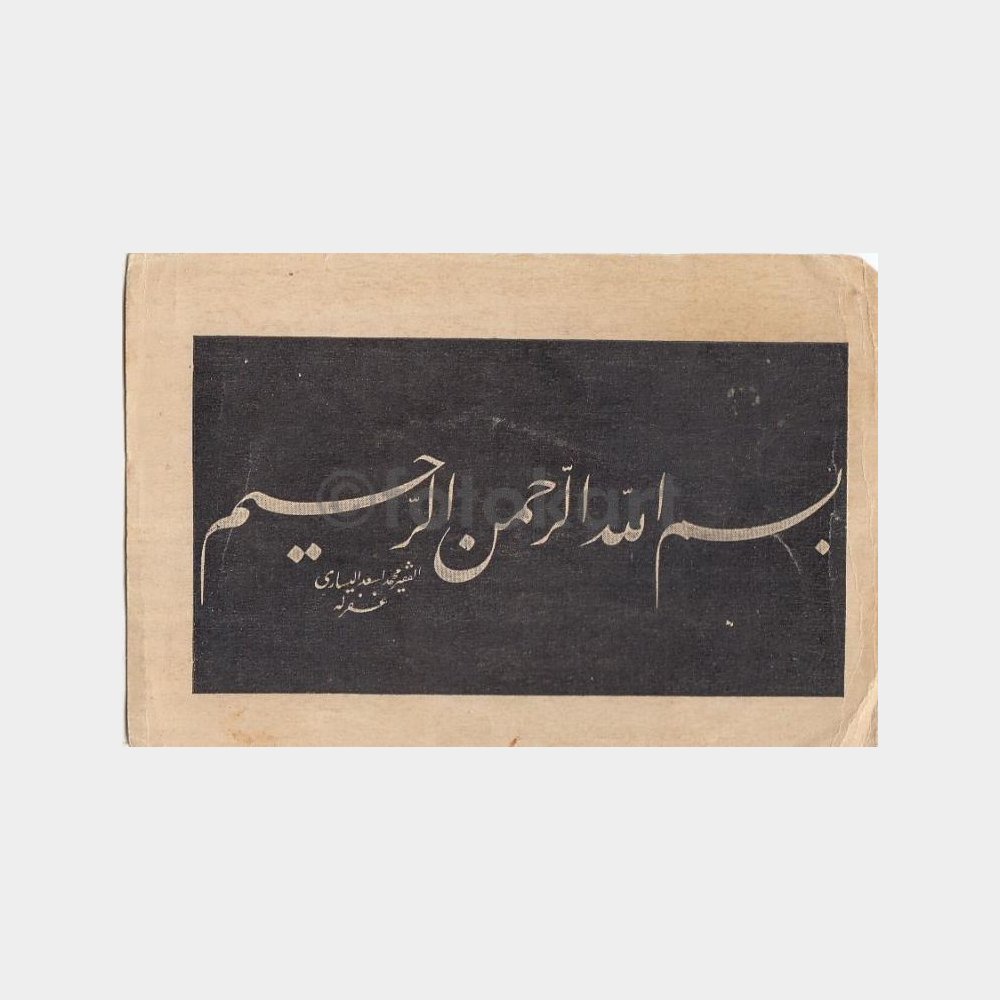 بسم الله الرّحمن الرّحيم
الفقير محمد اسعد اليسارى
غفر له
©fotokart